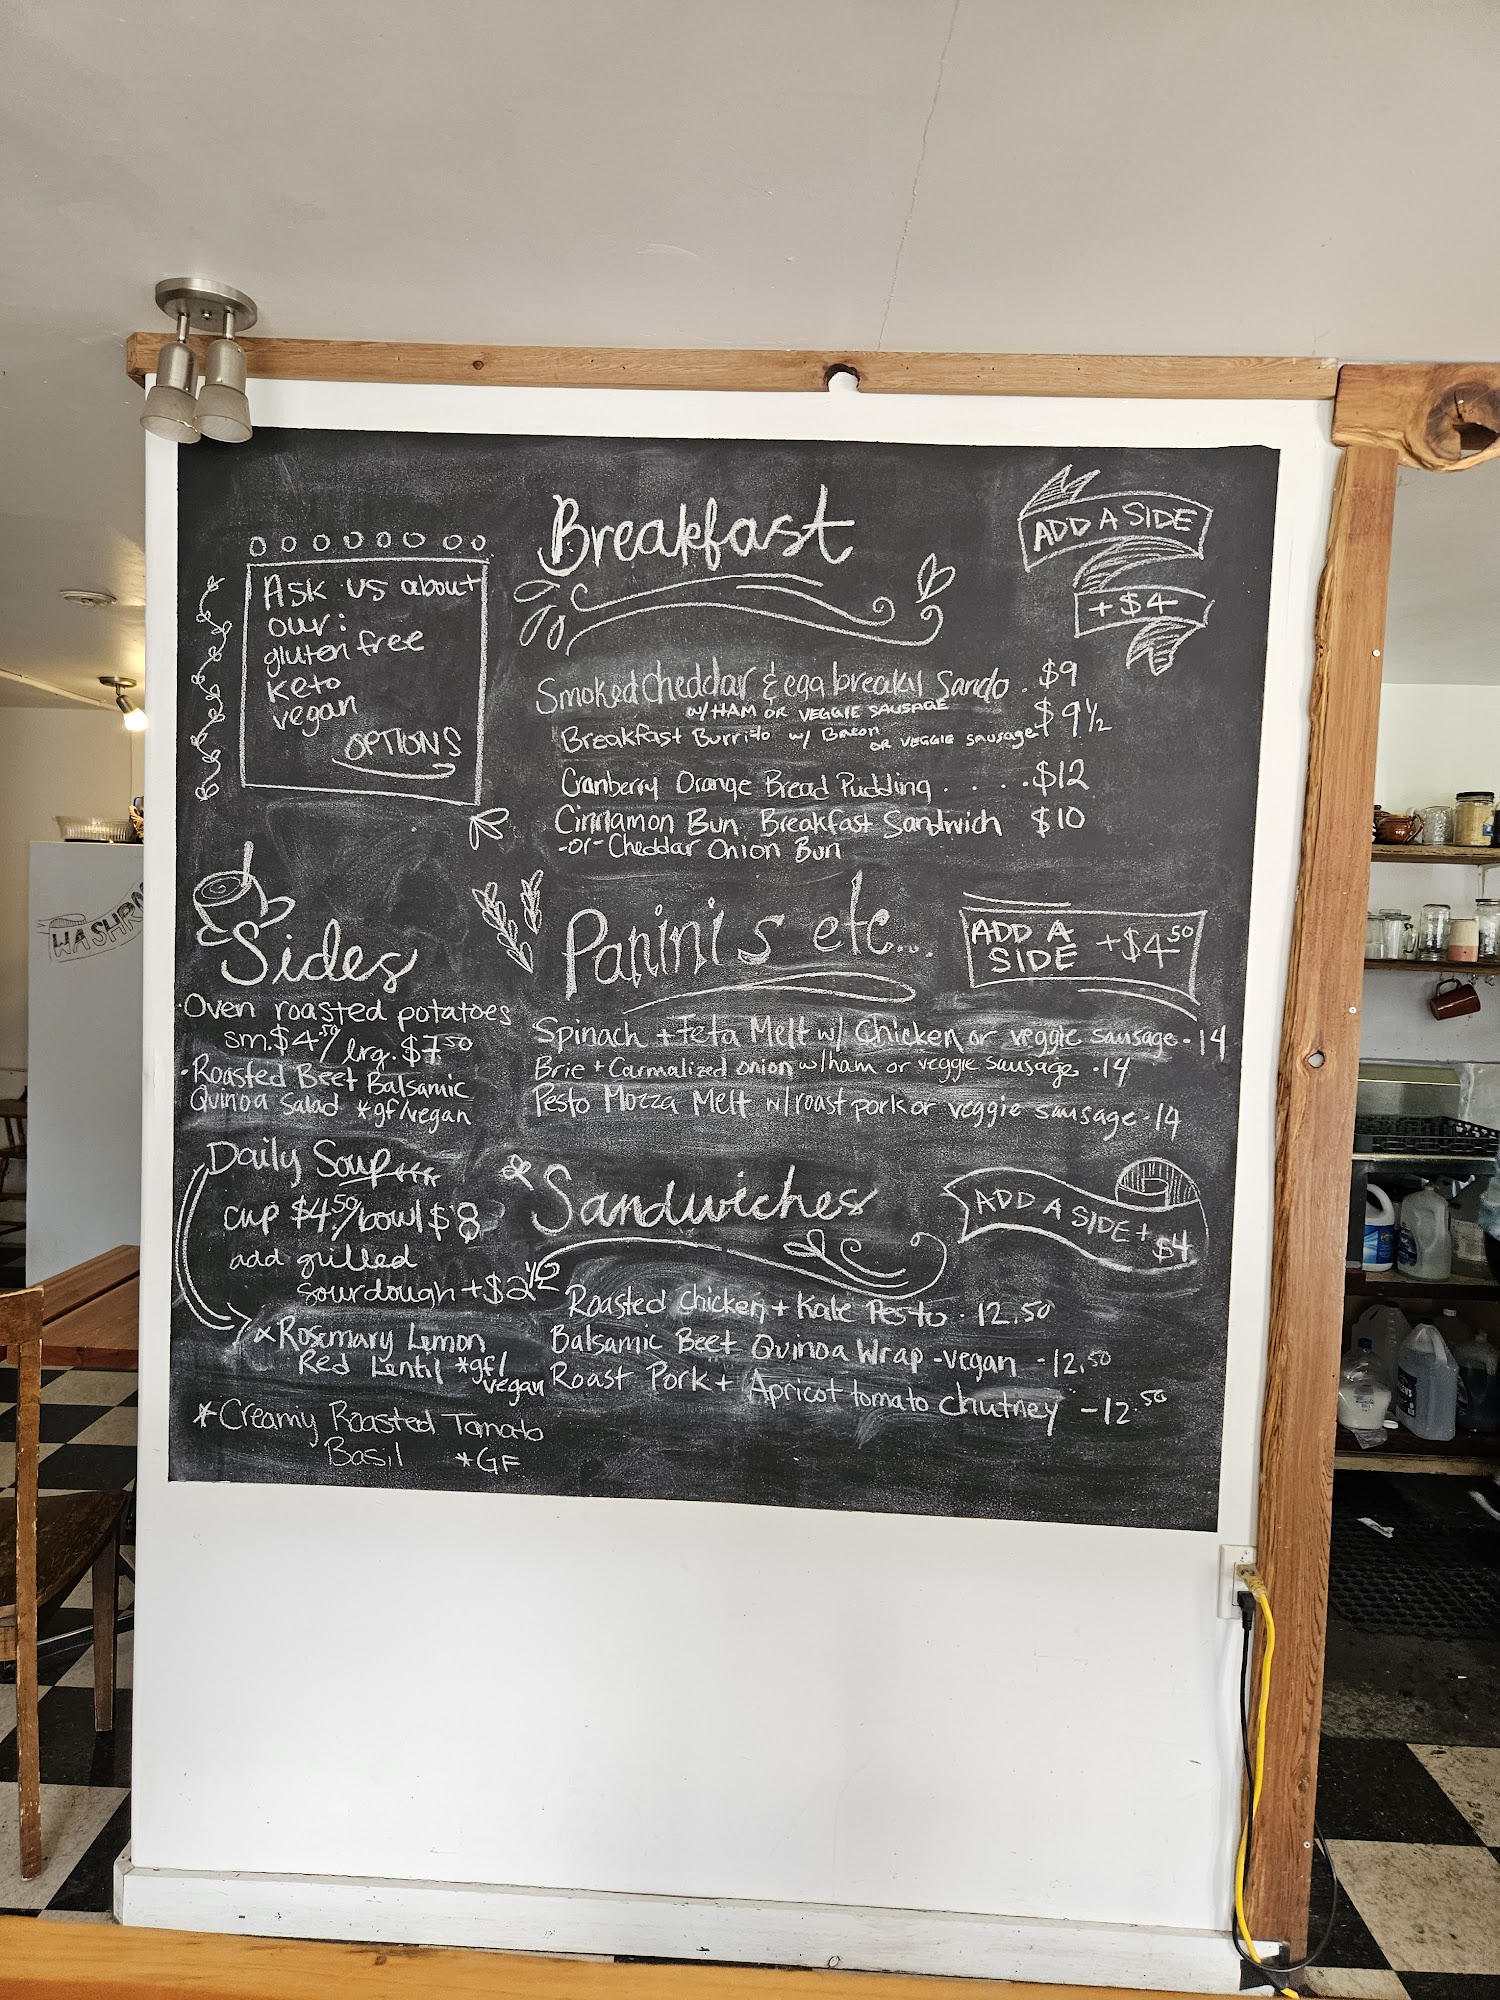 Breakfast
ADD A SIDE
+ $4
Ask us about
our:
gluten free
keto
vegan
OPTIONS
Smoked Cheddar & egg breaky Sando . $9
w/ HAM OR VEGGIE SAUSAGE
Breakfast Burrito w/ Bacon OR VEGGIE sausage $9 1/2
Cranberry Orange Bread Pudding . . . . $12
Cinnamon Bun Breakfast Sandwich $10
-or- Cheddar Onion Bun
WASHR
Sides
Oven roasted potatoes
sm. $4.50/ lrg. $7.50
• Roasted Beet Balsamic
Quinoa Salad *gf/vegan
Daily Soup
cup $4.50/bowl $8
add grilled
sourdough +$2 1/2
* Rosemary Lemon
Red Lentil *gf/
vegan
*Creamy Roasted Tomato
Basil *GF
Panini's etc...
ADD A
SIDE +$4.50
Spinach + Feta Melt w/ Chicken or veggie sausage - 14
Brie + Carmalized onion w/ham or veggie sausage - 14
Pesto Mozza Melt w/roast pork or veggie sausage - 14
Sandwiches
ADD A SIDE + $4
Roasted Chicken + Kale Pesto - 12.50
Balsamic Beet Quinoa Wrap - vegan - 12.50
Roast Pork + Apricot tomato chutney - 12.50